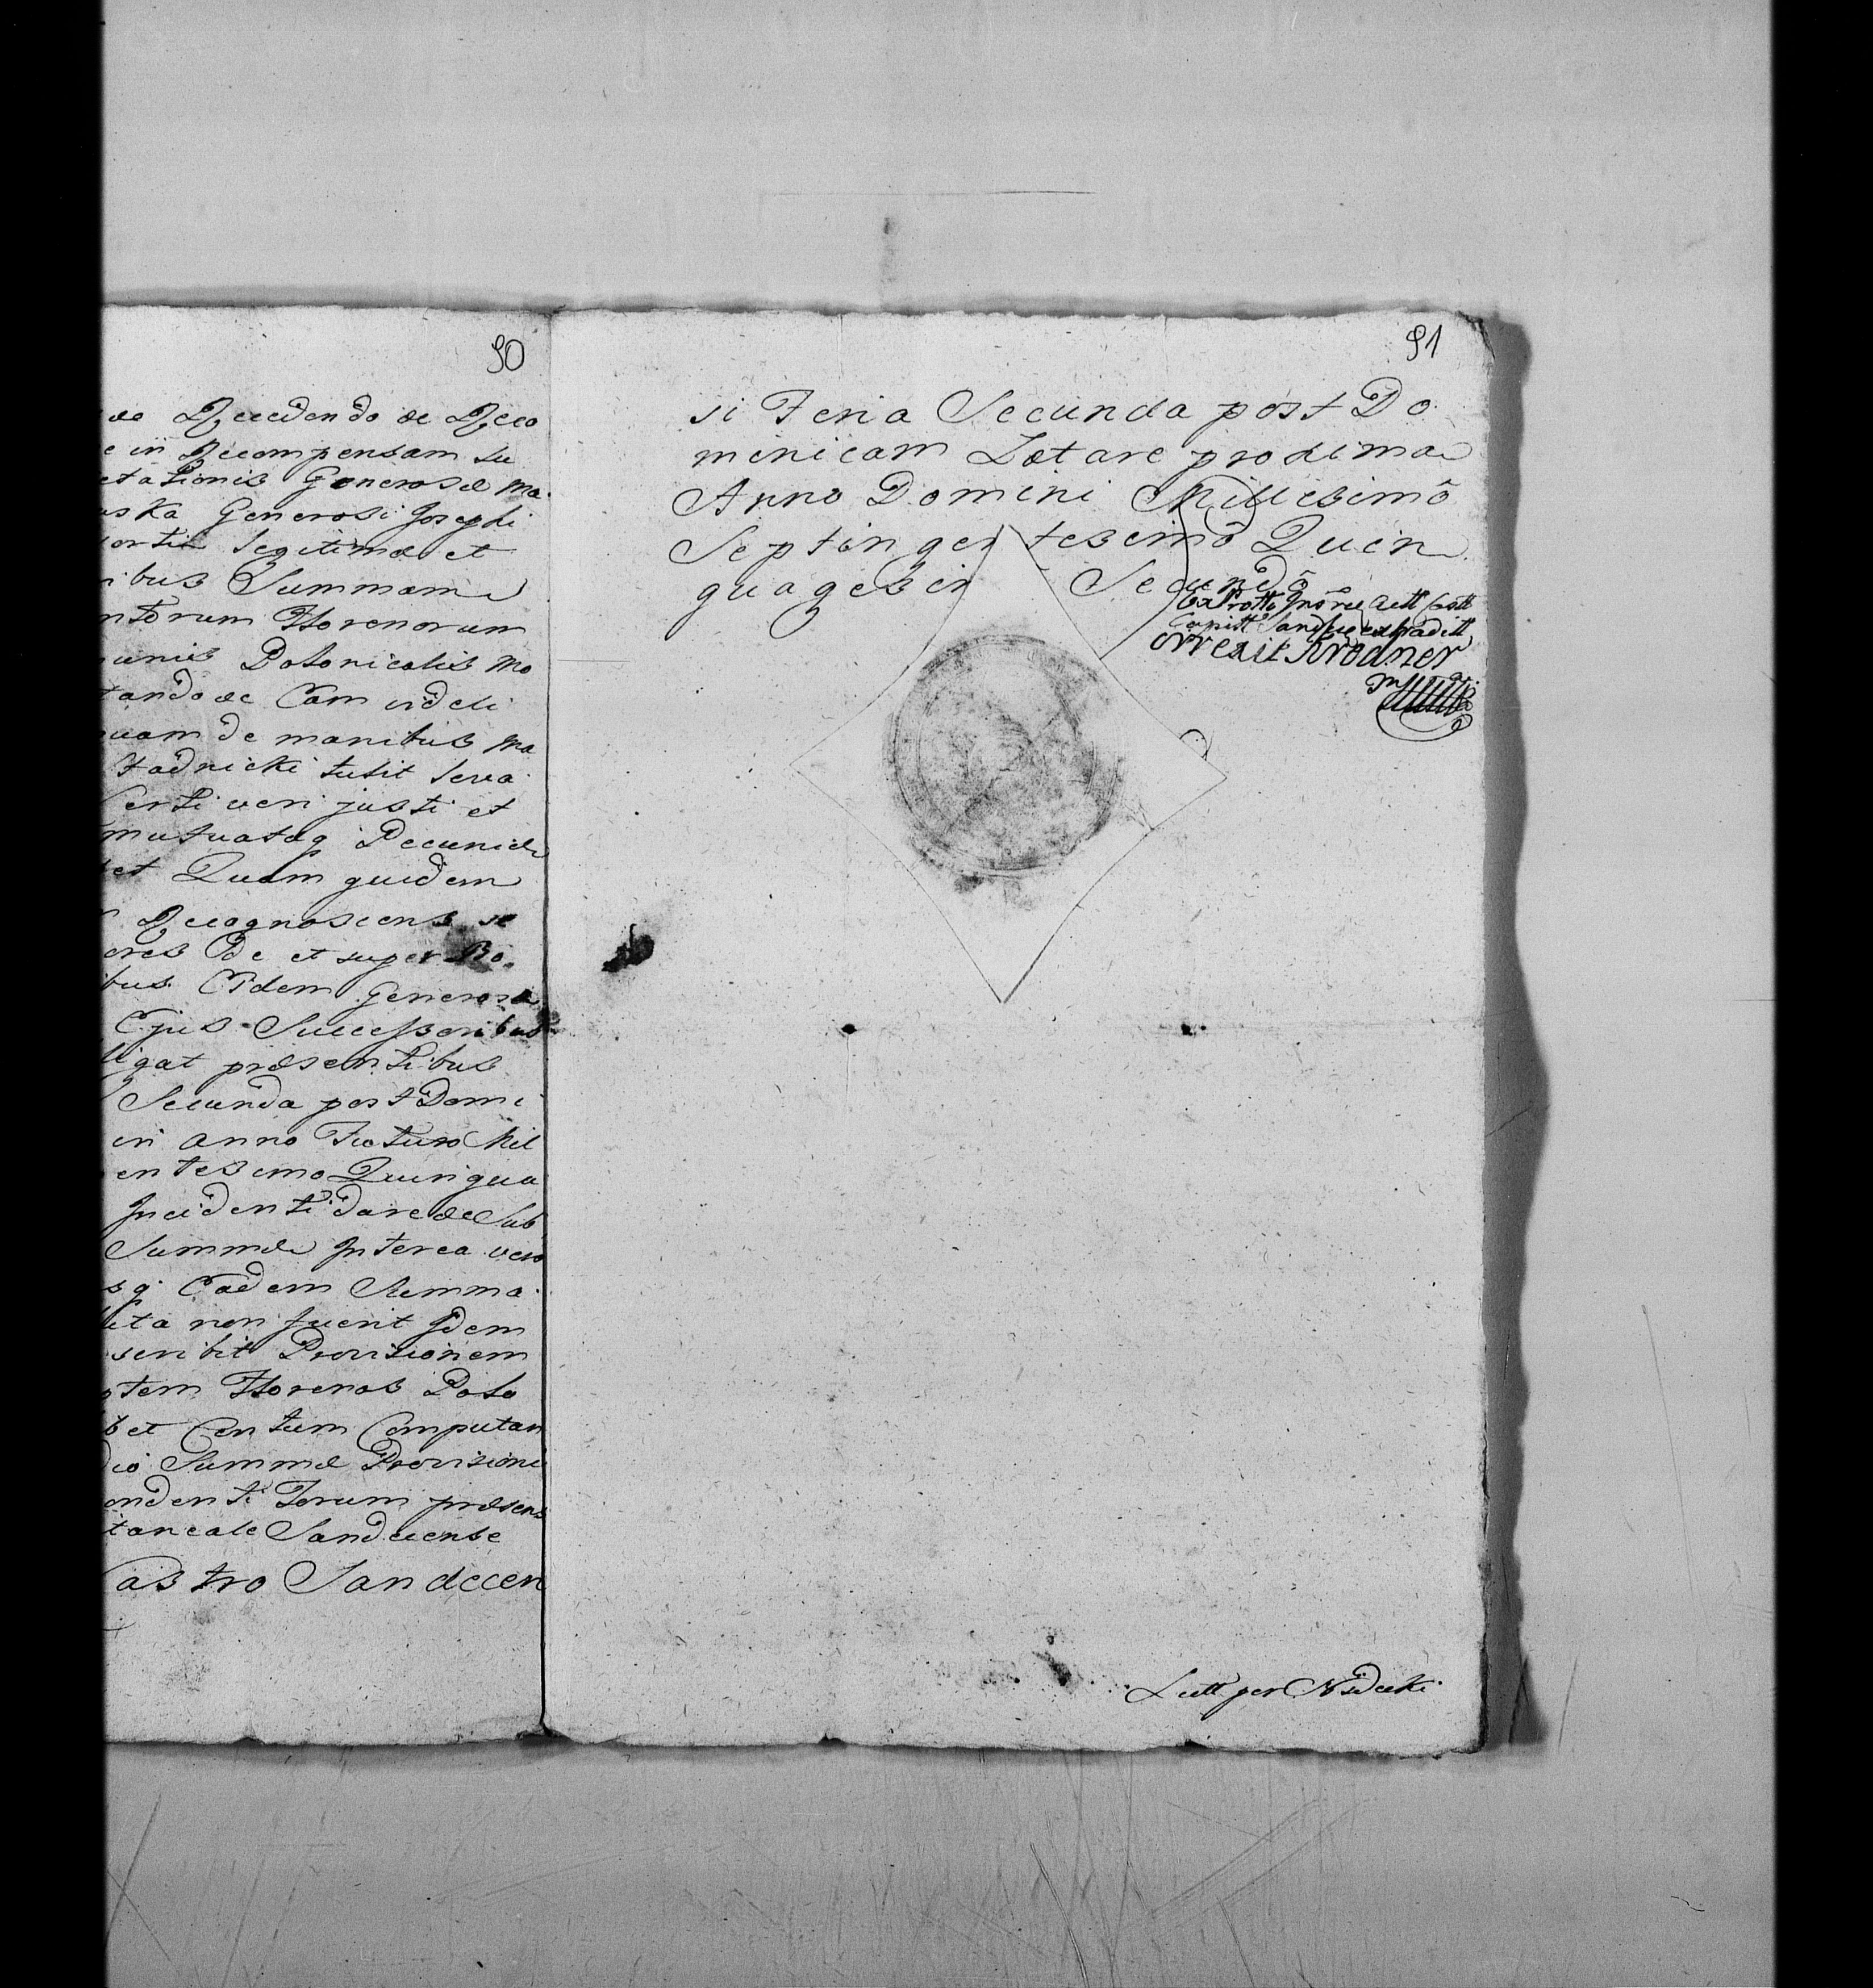 90
de Recedendo de Reco
e in Recompensam su
etationis Generosæ Ma
uska Generosi Josephi
sortis legitimæ et
ibus Summam
ntorum Florenorum
Polonicalis mo
tandoæ Eam videli
quam de manibus Ma
Stadnicki tulit leva
Certi veri justi et
mutuatæq Pecuniæ
et Quam quidem
Recognoscens se
ores de et super Bo
bus Eidem Generosæ
Ejus Successoribus
ligat præsentibus
Secunda post Domi
in anno Futuro Mil
entesimo Quinqua
Incidenti dare de Sub
Summæ Interea vero
sq Eadem Summa
uta non fuerit Idem
scribit Provisionem
ptem Florenos Polo
bet Centum Computan
dio Summæ Provisioni
ondenti Forum præsens
itaneale Sandecense
Castro Sandecen
91
si Feria Secunda post Do
minicam Lætare proxima
Anno Domini Millesimô
Septingentesimô Quin
quagesi Secundô
Ex Protto
Capitt Sandecen extraditt
orrexit Krodner
Lectt per Nidecki